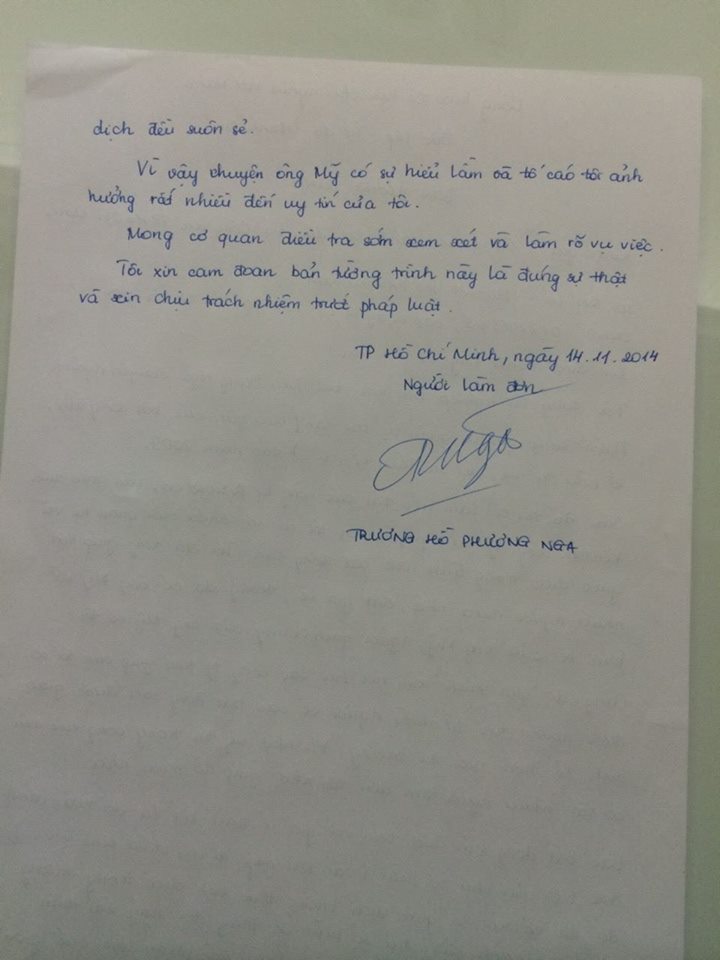 dịch đều suôn sẻ.
Vì vậy chuyện ông Mỹ có sự hiểu lầm và tố cáo tôi ảnh
hưởng rất nhiều đến uy tín của tôi.
Mong cơ quan điều tra sớm xem xét và làm rõ vụ việc.
Tôi xin cam đoan bản tường trình này là đúng sự thật
và xin chịu trách nhiệm trước pháp luật.
TP Hồ Chí Minh, ngày 14.11.2014
Người làm đơn
Nga
TRƯƠNG HỒ PHƯƠNG NGA